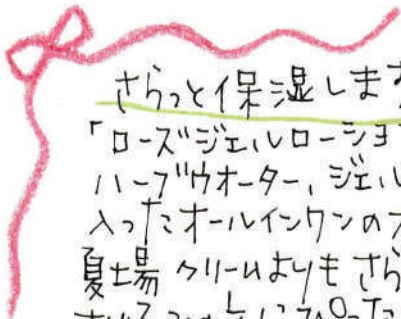 さらっと保湿します
「ローズジェルローショ
ハーブウオーター、ジェル
入ったオールインワンの
夏場 クリームよりもさら